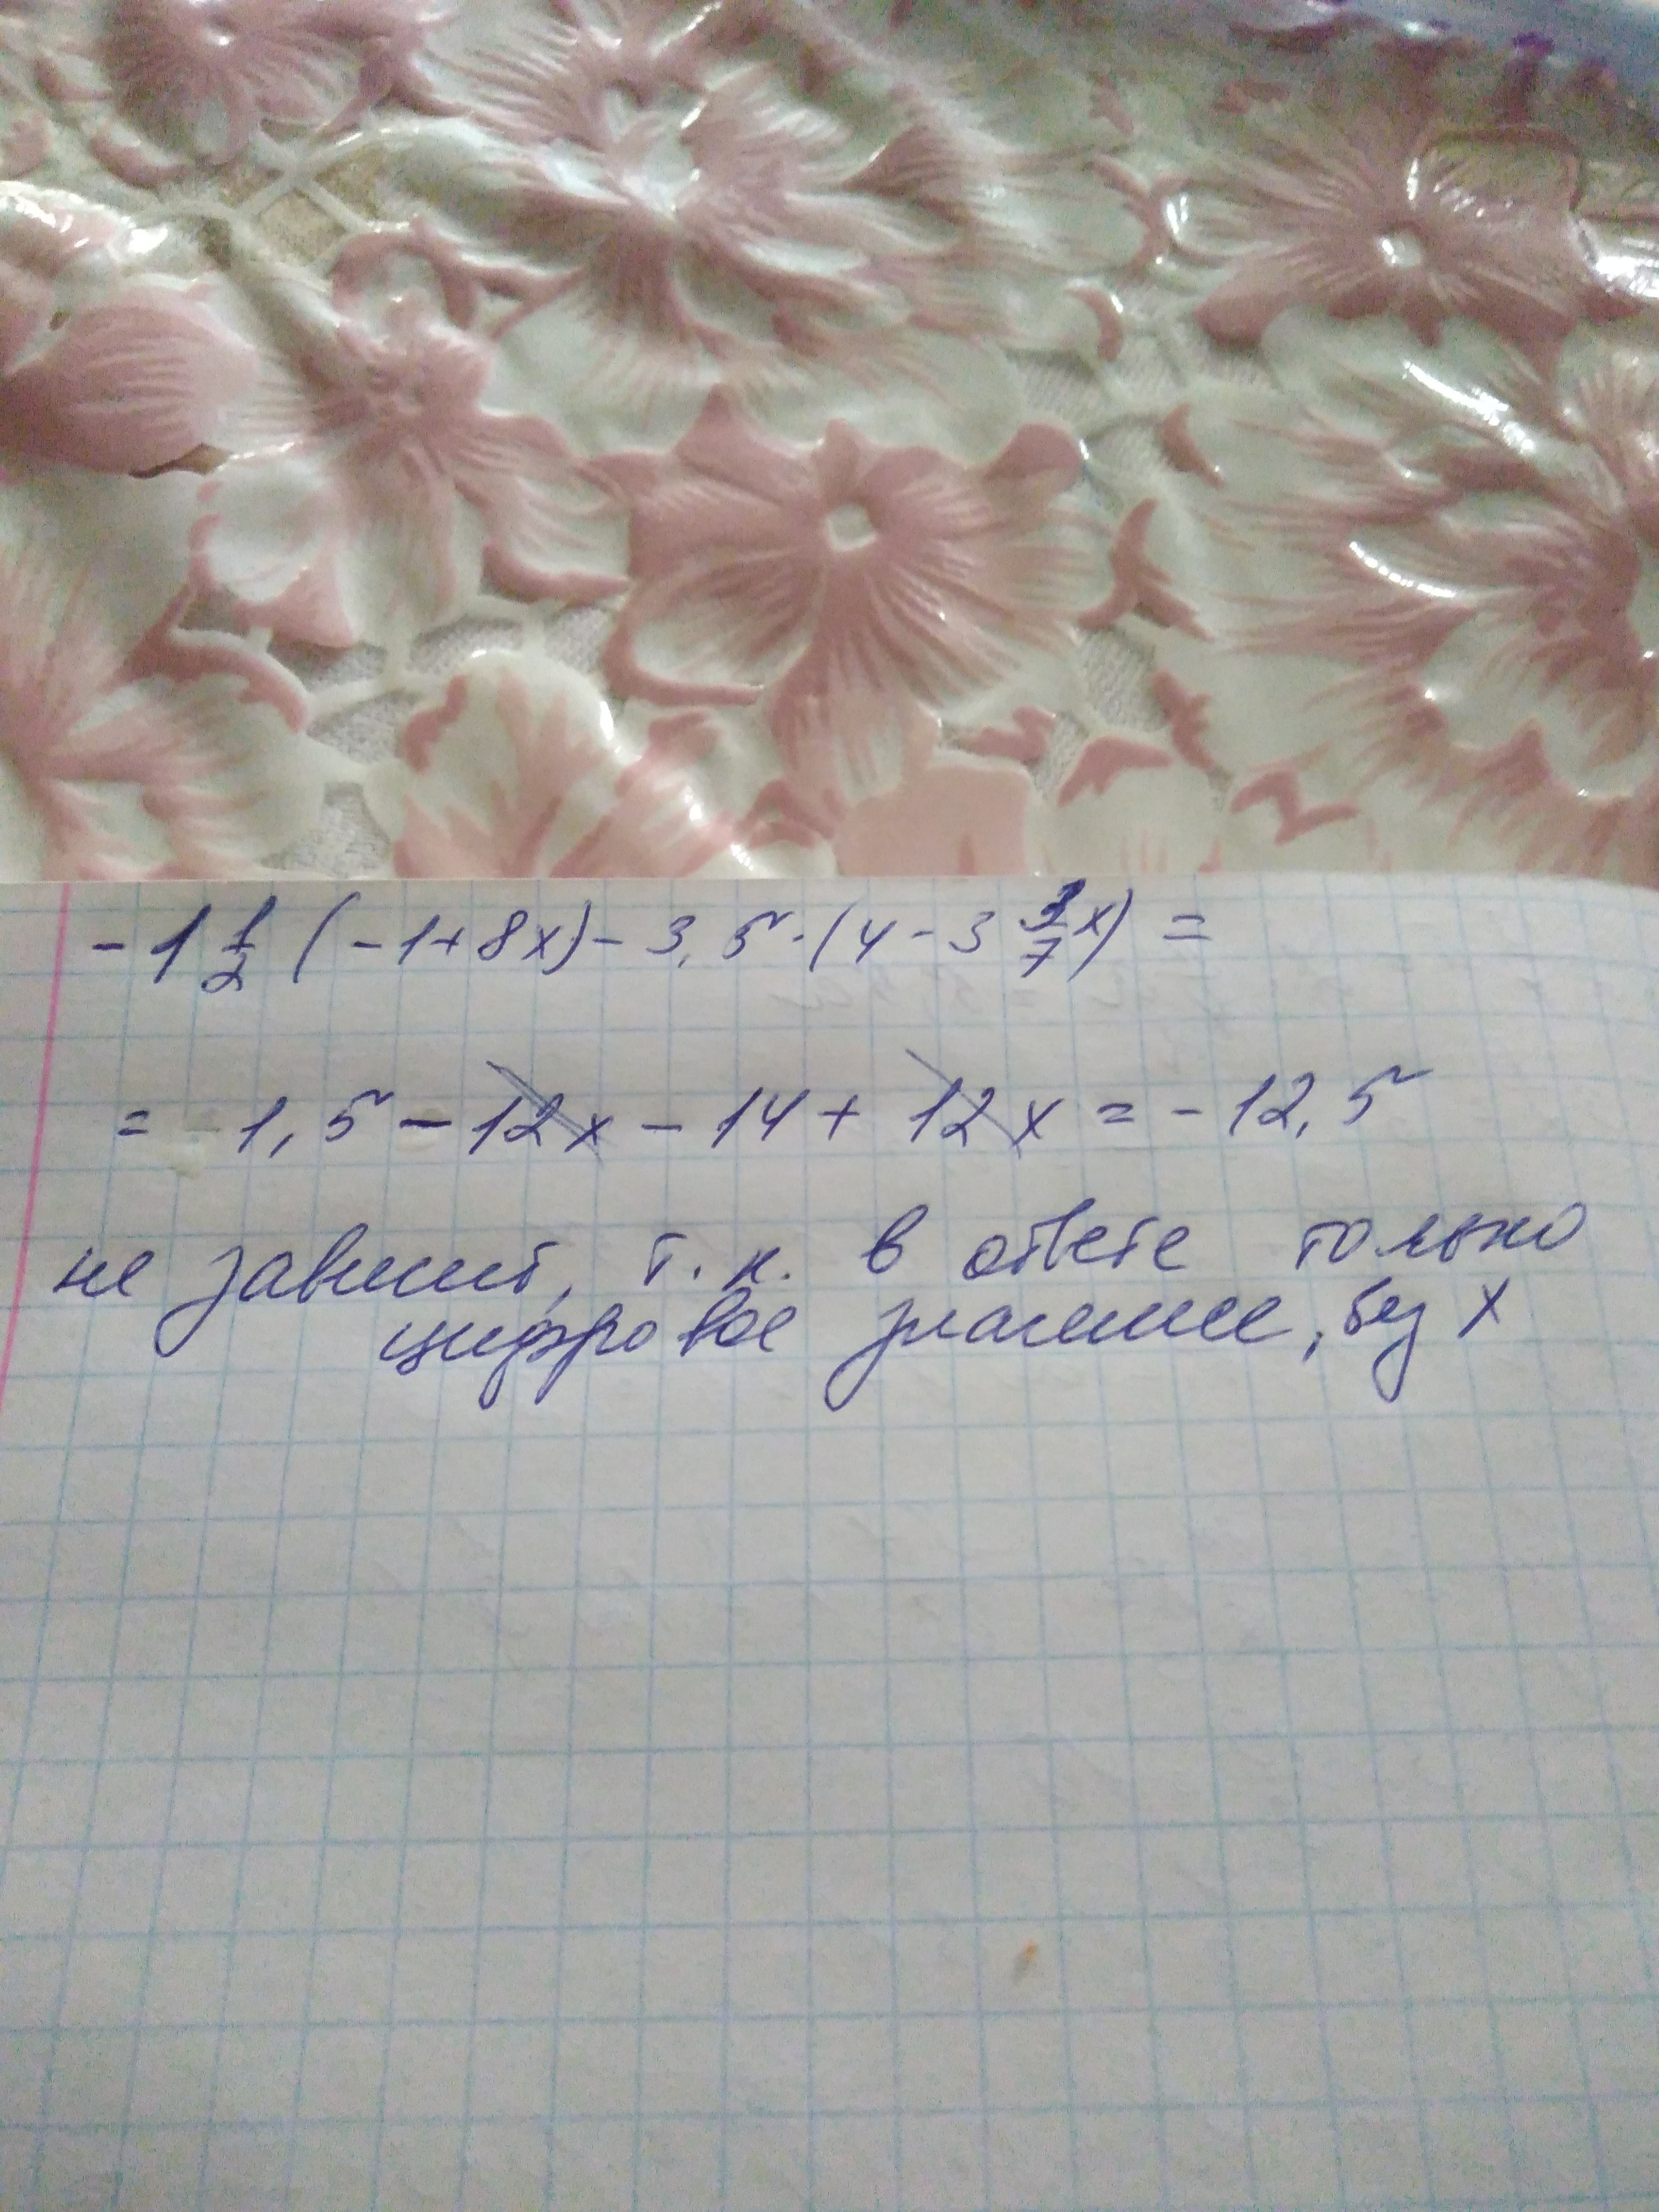 -1 1/2 (-1+8x)-3,5·(4-3 3/7x)=
= 1,5-12x-14+12x=-12,5
не зависит, т.к. в ответе только
цифровое значение, без x